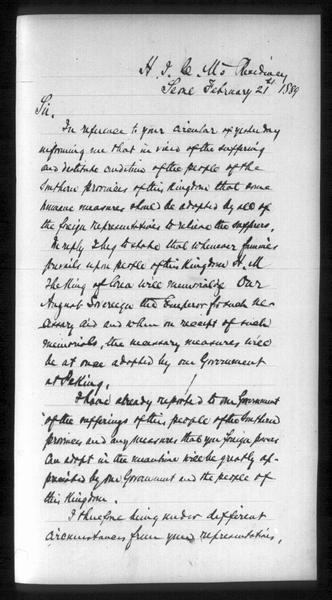 H. I. C. M's Residency
Seoul February 21st 1889
Sir,
In reference to your circular of yesterday
informing me that in view of the suffering
and destitute condition of the people of the
Southern provinces of this Kingdom that some
humane measures should be adopted by all of
the foreign representatives to relieve the sufferers.
In reply I beg to state that whenever famine
prevails upon people of this Kingdom H. M
The King of Corea will memorialize Our
August Sovereign the Emperor for such ne-
cessary aid and when on receipt of such
memorials, the necessary measures will
be at once adopted by our Government
at Peking.
I have already reported to our Government
of the sufferings of this people of the Southern
provinces and any measures that your foreign powers
can adopt in the meantime will be greatly ap-
preciated by our Government and the people of
this Kingdom.
I therefore being under different
circumstances from your representations,